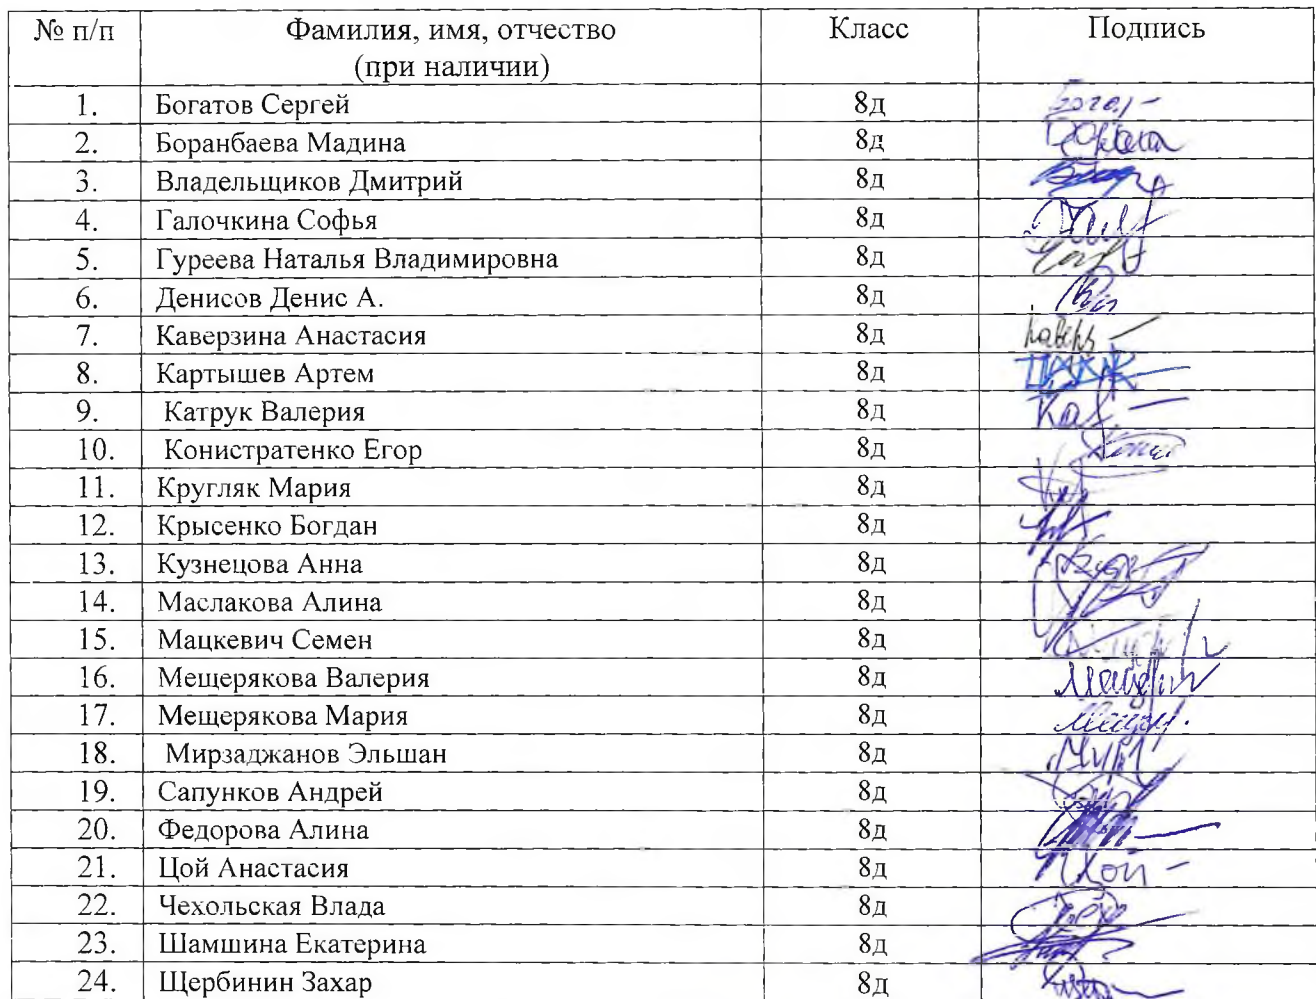 № п/п Фамилия, имя, отчество Класс Подпись
(при наличии)
1. Богатов Сергей 8д
2. Боранбаева Мадина 8д
3. Владельщиков Дмитрий 8д
4. Галочкина Софья 8д
5. Гуреева Наталья Владимировна 8д
6. Денисов Денис А. 8д
7. Каверзина Анастасия 8д
8. Картышев Артем 8д
9. Катрук Валерия 8д
10. Конистратенко Егор 8д
11. Кругляк Мария 8д
12. Крысенко Богдан 8д
13. Кузнецова Анна 8д
14. Маслакова Алина 8д
15. Мацкевич Семен 8д
16. Мещерякова Валерия 8д
17. Мещерякова Мария 8д
18. Мирзаджанов Эльшан 8д
19. Сапунков Андрей 8д
20. Федорова Алина 8д
21. Цой Анастасия 8д
22. Чехольская Влада 8д
23. Шамшина Екатерина 8д
24. Щербинин Захар 8д